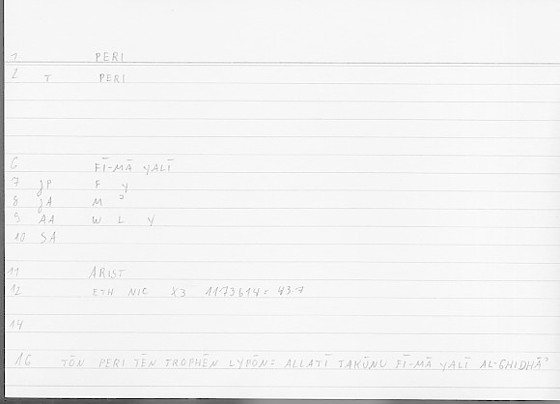 1 PERI
2 T PERI
6 FĪ-MĀ YALĪ
7 JP F Y
8 JA M ʾ
9 AA W L Y
10 SA
11 ARIST
12 ETH NIC X3 1173614 = 437
14
16 TŌN PERI TĒN TROPHĒN LYPŌN = ALLATĪ TAKŪNU FĪ-MĀ YALĪ AL-GHIDHĀʾ